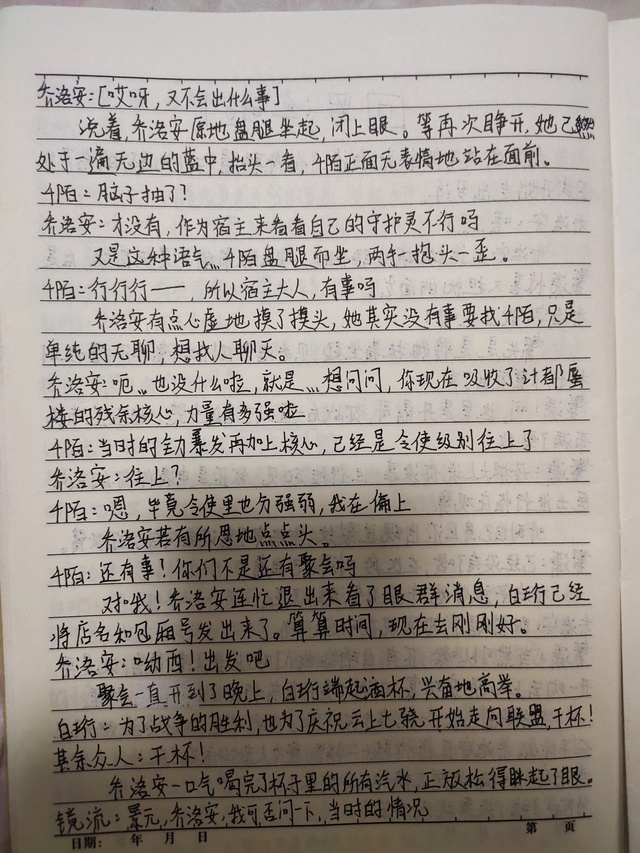 乔洛安：[哎呀，又不会出什么事]
说着，乔洛安原地盘腿坐起，闭上眼。等再次睁开，她已然
处于一滴无边的蓝中，抬头一看，阡陌正面无表情地站在面前。
阡陌：脑子抽了？
乔洛安：才没有，作为宿主来看看自己的守护灵不行吗
又是这种语气… 阡陌盘腿而坐，两手一抱头一歪。
阡陌：行行行——，所以宿主大人，有事吗
乔洛安有点心虚地摸了摸头，她其实没有事要找阡陌，只是
单纯的无聊，想找人聊天。
乔洛安：呃…也没什么啦，就是… 想问问，你现在吸收了计都蜃
楼的残余核心，力量有多强啦
阡陌：当时的全力暴发再加上核心，已经是令使级别往上了
乔洛安：往上？
阡陌：嗯，毕竟令使里也分强弱，我在偏上
乔洛安若有所思地点点头。
阡陌：还有事！你们不是还有聚会吗
对哦！乔洛安连忙退出来看了眼群消息，白珩已经
将店名和包厢号发出来了。算算时间，现在去刚刚好。
乔洛安：呦西！出发吧
聚会一直开到了晚上，白珩端起酒杯，兴奋地高举。
白珩：为了战争的胜利，也为了庆祝云上七骁开始走向联盟，干杯！
其余众人：干杯！
乔洛安一口气喝完了杯子里的所有汽水，正放松得眯起了眼。
镜流：景元，乔洛安，我可否问一下，当时的情况
日期： 年 月 日 第 页